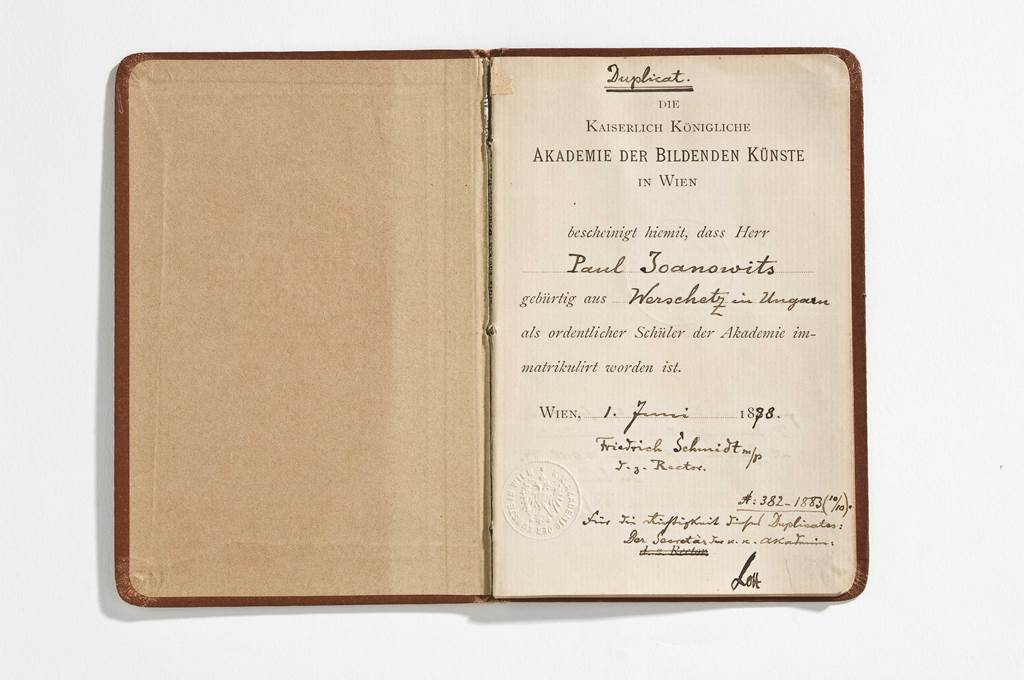 Duplicat.
DIE
KAISERLICH KÖNIGLICHE
AKADEMIE DER BILDENDEN KÜNSTE
IN WIEN
bescheinigt hiemit, dass Herr
Paul Joanowits
gebürtig aus Werschetz in Ungarn
als ordentlicher Schüler der Akademie im-
matrikulirt worden ist.
WIEN, 1. Juni 1878.
Friedrich Schmidt m/p
d. z. Rector.
A: 382-1883 (10/10).
Für die Richtigkeit dieses Duplicates:
Der Secretär der k. k. Akademie:
d. z. Rector
Lott